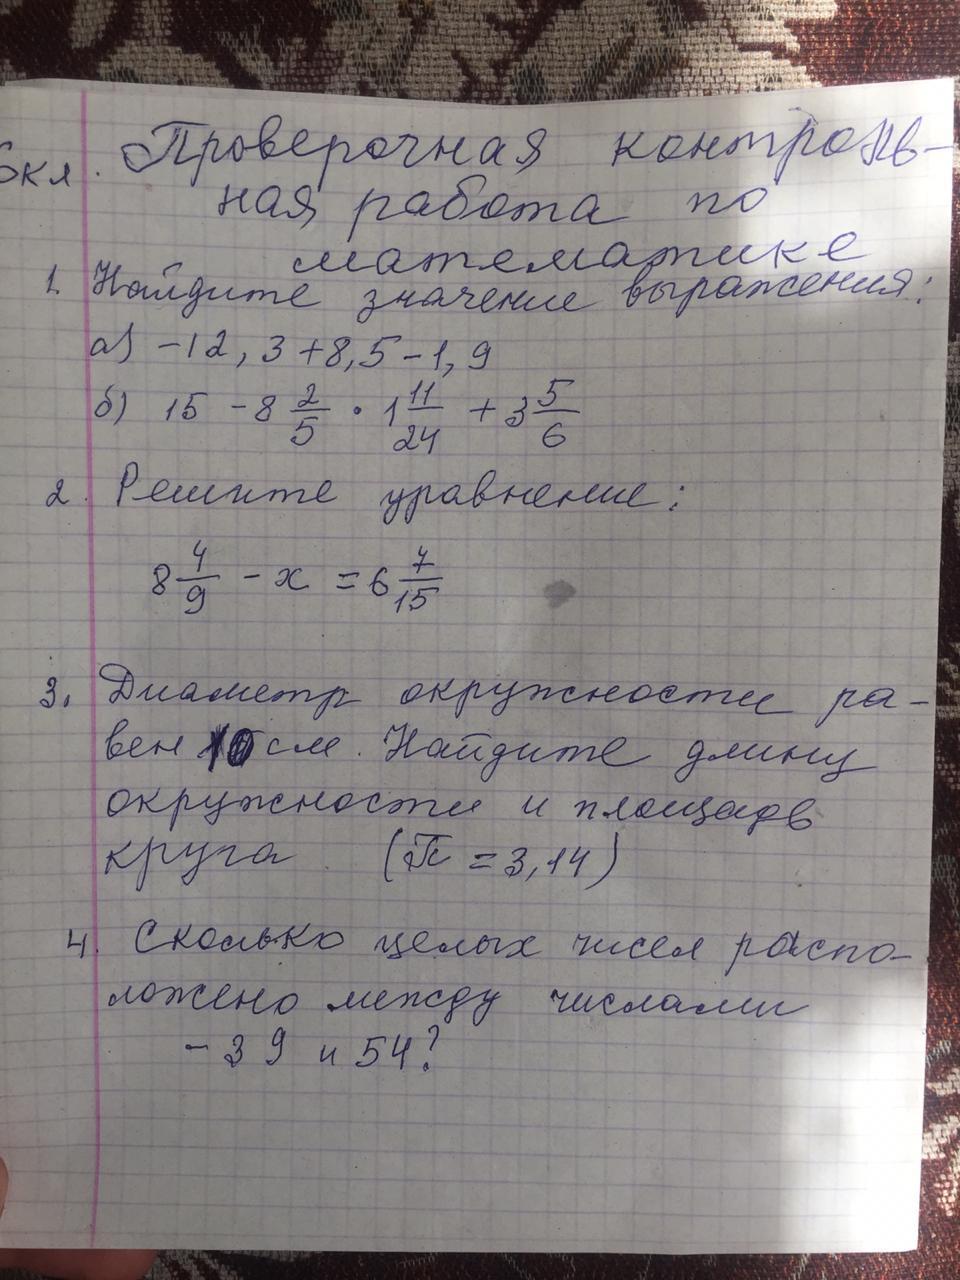 6кл. Проверочная контроль-
ная работа по
математике
1. Найдите значение выражения:
а) -12,3+8,5-1,9
б) 15 - 8 2/5 · 1 11/24 + 3 5/6
2. Решите уравнение:
8 4/9 - x = 6 7/15
3. Диаметр окружности ра-
вен 10 см. Найдите длину
окружности и площадь
круга (π = 3,14)
4. Сколько целых чисел распо-
ложено между числами
-39 и 54?